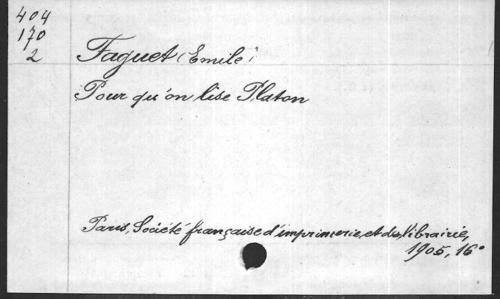 404
170
2
Faguet (Emile)
Pour qu'on lise Platon
Paris, Société française d'imprimerie et de librairie,
1905, 16°